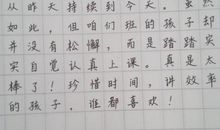 从昨天持续到今天。虽然
如此，但咱们班的孩子却
并没有松懈，而是踏踏实
实自觉认真上课。真是太
棒了！珍惜时间，讲效率
的孩子，谁都喜欢！